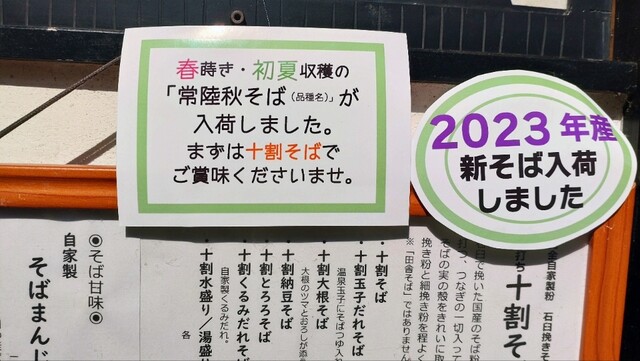 春蒔き・初夏収穫の
「常陸秋そば（品種名）」が
入荷しました。
まずは十割そばで
ご賞味くださいませ。
2023年産
新そば入荷
しました
全自家製粉　石臼挽き
打ち十割そ
臼で挽いた国産のそば
打つ、つなぎの一切入っ
そばの実の殻をきれいに取
挽き粉と細挽き粉を程よく
※「田舎そば」ではありませ
・十割そば
・十割玉子だれそば
温泉玉子にそばつゆ入
・十割大根そば
大根のツマとおろしが添
・十割納豆そば
・十割とろろそば
・十割くるみだれそば
自家製くるみだれ。
・十割水盛り／湯盛
各
◎そば甘味◎
自家製
そばまんじ